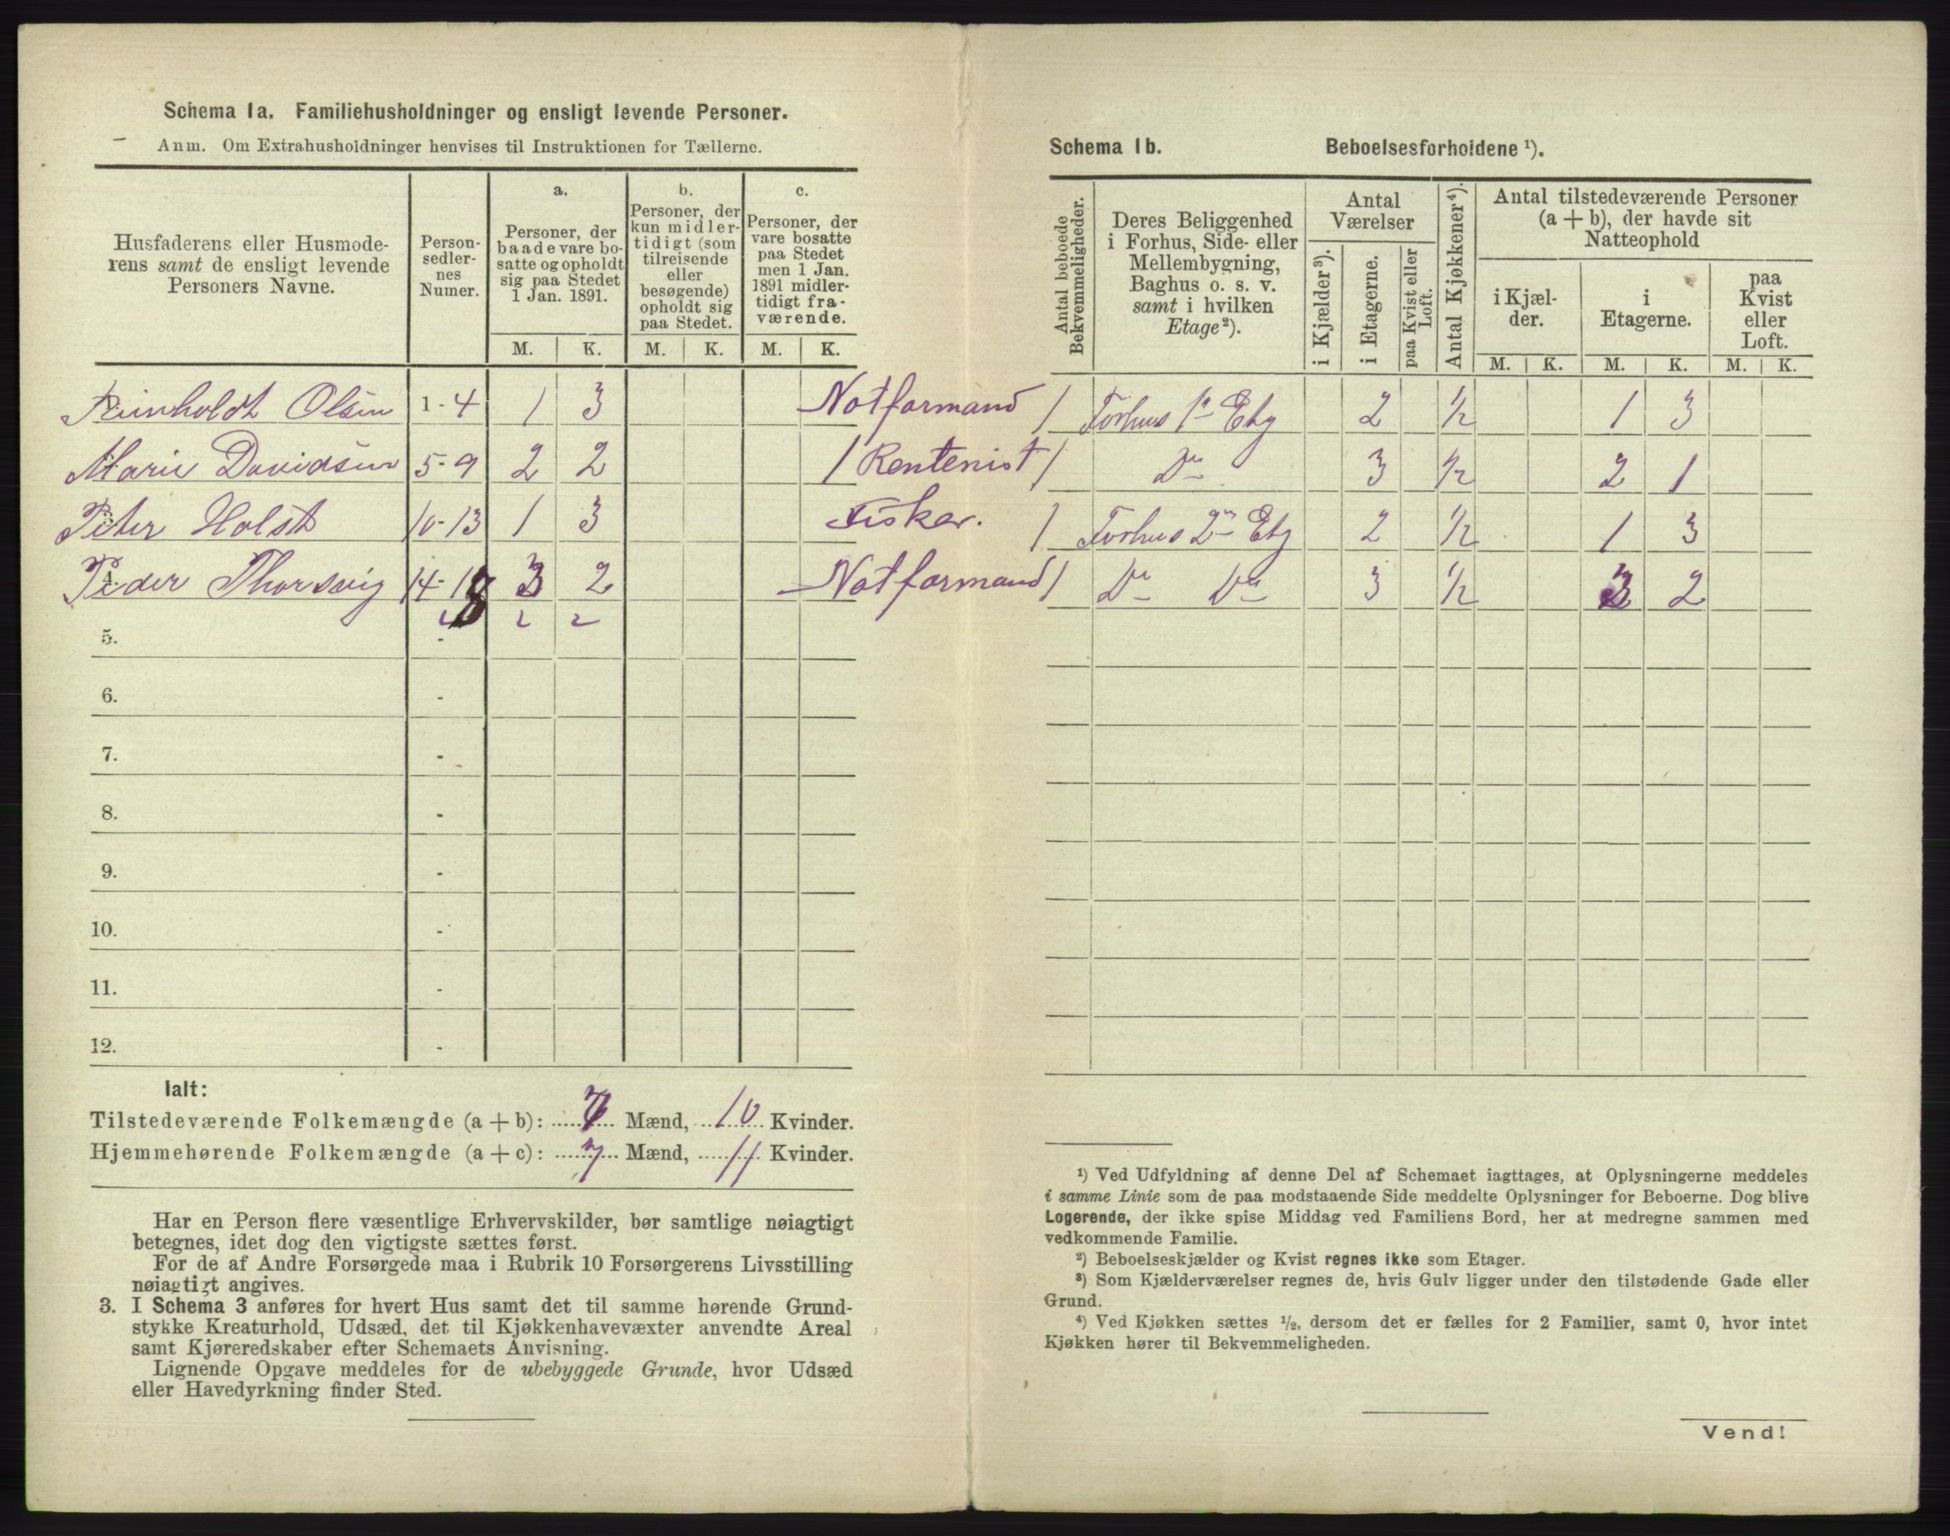 Schema 1a. Familiehusholdninger og ensligt levende Personer.
Anm. Om Extrahusholdninger henvises til Instruktionen for Tællerne.
Husfaderens eller Husmode-
rens samt de ensligt levende
Personers Navne.
Person-
sedler-
nes
Numer.
a.
Personer, der
baade vare bo-
satte og opholdt
sig paa Stedet
1 Jan. 1891.
b.
Personer, der
kun midler-
tidigt (som
tilreisende
eller
besøgende)
opholdt sig
paa Stedet.
c.
Personer, der
vare bosatte
paa Stedet
men 1 Jan.
1891 midler-
tidigt fra-
værende.
M. K. M. K. M. K.
Reinholdt Olsen 1-4 1 3 Notformand
Marie Davidsen 5-9 2 2 1 Rentenist
Peter Holst 10-13 1 3 Fisker.
Peder Thorsvig 14-18 3 2 Notformand
2 2
5. -
6. -
7. -
8. -
9. -
10. -
11. -
12. -
Ialt:
Tilstedeværende Folkemængde (a + b): 7 Mænd, 10 Kvinder.
Hjemmehørende Folkemængde (a + c): 7 Mænd, 11 Kvinder.
Har en Person flere væsentlige Erhvervskilder, bør samtlige nøiagtigt
betegnes, idet dog den vigtigste sættes først.
For de af Andre Forsørgede maa i Rubrik 10 Forsørgerens Livsstilling
nøiagtigt angives.
3. I Schema 3 anføres for hvert Hus samt det til samme hørende Grund-
stykke Kreaturhold, Udsæd, det til Kjøkkenhavevæxter anvendte Areal
samt Kjøreredskaber efter Schemaets Anvisning.
Lignende Opgave meddeles for de ubebyggede Grunde, hvor Udsæd
eller Havedyrkning finder Sted.
Schema 1b. Beboelsesforholdene ¹).
Antal beboede
Bekvemmeligheder.
Deres Beliggenhed
i Forhus, Side- eller
Mellembygning,
Baghus o. s. v.
samt i hvilken
Etage²).
Antal
Værelser
i Kjælder³).
i Etagerne.
paa Kvist eller
Loft.
Antal Kjøkkener⁴).
Antal tilstedeværende Personer
(a + b), der havde sit
Natteophold
i Kjæl-
der.
i
Etagerne.
paa
Kvist
eller
Loft.
M. K. M. K. M. K.
1 Forhus 1ste Etg 2 ½ 1 3
1 Do 3 ½ 2 1
1 Forhus 2den Etg 2 ½ 1 3
1 Do Do 3 ½ 3 2
¹) Ved Udfyldning af denne Del af Schemaet iagttages, at Oplysningerne meddeles
i samme Linie som de paa modstaaende Side meddelte Oplysninger for Beboerne. Dog blive
Logerende, der ikke spise Middag ved Familiens Bord, her at medregne sammen med
vedkommende Familie.
²) Beboelseskjælder og Kvist regnes ikke som Etager.
³) Som Kjælderværelser regnes de, hvis Gulv ligger under den tilstødende Gade eller
Grund.
⁴) Ved Kjøkken sættes ½, dersom det er fælles for 2 Familier, samt 0, hvor intet
Kjøkken hører til Bekvemmeligheden.
Vend!